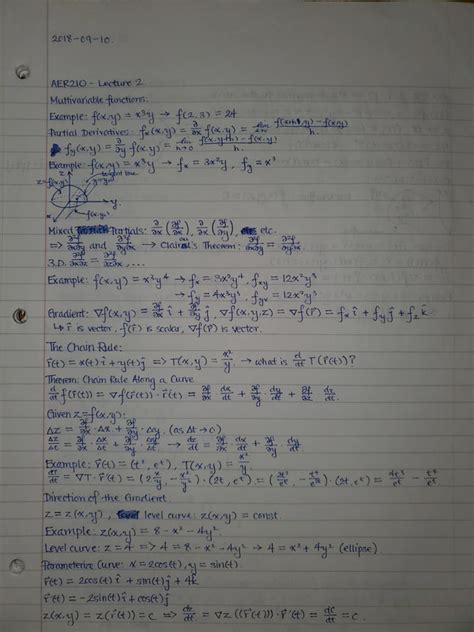 2018-09-10.
AER210 - Lecture 2
Multivariable functions:
Example: f(x,y) = x³y → f(2,3) = 24
Partial Derivatives: fₓ(x,y) = ∂/∂x f(x,y) = lim h→0 f(x+h,y) - f(x,y) / h.
f_y(x,y) = ∂/∂y f(x,y) = lim h→0 f(x,y+h) - f(x,y) / h.
Example: f(x,y) = x³y → fₓ = 3x²y, f_y = x³
z
z=f(x,y)
tangent line
y
f(x,y)
x
Mixed Partials: ∂/∂x (∂f/∂x), ∂/∂x (∂f/∂y), etc.
⇒ ∂²f/∂x∂y and ∂²f/∂y∂x → Clairaut's Theorem: ∂²f/∂x∂y = ∂²f/∂y∂x
3.D. ∂²f/∂x∂z = ∂²f/∂z∂x, ...
Example: f(x,y) = x³y⁴ → fₓ = 3x²y⁴, f_xy = 12x²y³
→ f_y = 4x³y³, f_yx = 12x²y³
Gradient: ∇f(x,y) = ∂f/∂x î + ∂f/∂y ĵ, ∇f(x,y,z) = ∇f(r⃗) = fₓ î + f_y ĵ + f_z k̂
↳ r⃗ is vector, f(r⃗) is scalar, ∇f(r⃗) is vector.
The Chain Rule:
r⃗(t) = x(t) î + y(t) ĵ ⇒ T(x,y) = x²/y → what is d/dt T(r⃗(t))?
Theorem: Chain Rule Along a Curve
d/dt f(r⃗(t)) = ∇f(r⃗(t)) · r⃗'(t) = ∂f/∂x dx/dt + ∂f/∂y dy/dt + ∂f/∂z dz/dt
Given z = f(x,y):
Δz = ∂f/∂x · Δx + ∂f/∂y · Δy. (as Δt → 0)
Δz/Δt = ∂f/∂x Δx/Δt + ∂f/∂y Δy/Δt → dz/dt = ∂f/∂x dx/dt + ∂f/∂y dy/dt
Example: r⃗(t) = (t², eᵗ), T(x,y) = x²/y.
dT/dt = ∇T · r⃗'(t) = (2x/y, -x²/y²) · (2t, eᵗ) = (2t²/eᵗ, -t⁴/e²ᵗ) · (2t, eᵗ) = 4t³/eᵗ - t⁴/eᵗ
Direction of the Gradient
z = z(x,y), level curve: z(x,y) = const.
Example: z(x,y) = 8 - x² - 4y²
Level curve: z = 4 => 4 = 8 - x² - 4y² → 4 = x² + 4y² (ellipse)
Parameterize Curve: x = 2cos(t), y = sin(t).
r⃗(t) = 2cos(t) î + sin(t) ĵ + 4k̂
r⃗'(t) = -2sin(t) î + cos(t) ĵ
z(x,y) = z(r⃗(t)) = c ⇒ dz/dt = ∇z(r⃗(t)) · r⃗'(t) = dc/dt = 0.